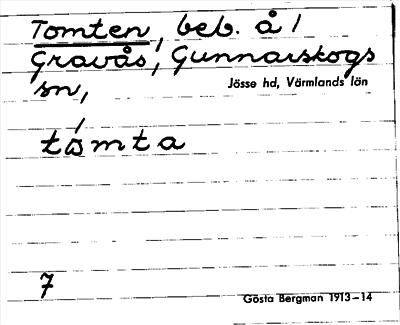 Tomten, beb. å /
Gravås, Gunnarskogs
sn,
Jösse hd, Värmlands län
tómta
7
Gösta Bergman 1913–14